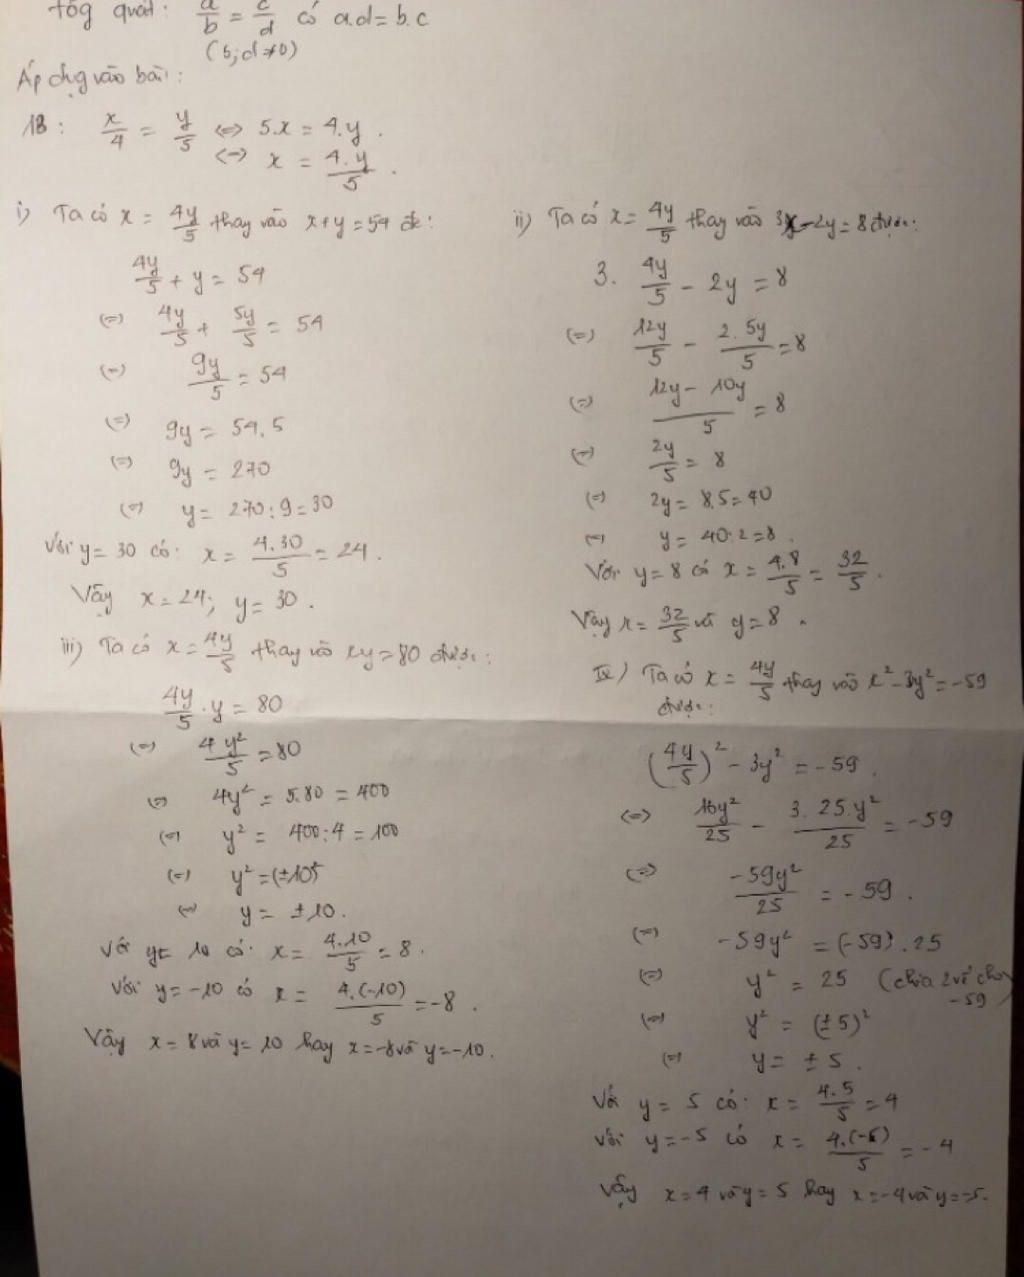 tổg quát: a/b = c/d có a.d = b.c
(b; d ≠ 0)
Áp dụg vào bài:
1B: x/4 = y/5 <=> 5.x = 4.y.
<=> x = 4.y/5.
i) Ta có x = 4y/5 thay vào x+y = 54 đc:
4y/5 + y = 54
(=) 4y/5 + 5y/5 = 54
(=) 9y/5 = 54
(=) 9y = 54.5
(=) 9y = 270
(=) y = 270:9 = 30
Với y = 30 có: x = 4.30/5 = 24.
Vậy x = 24; y = 30.
ii) Ta có x = 4y/5 thay vào 3x-2y = 8 được:
3. 4y/5 - 2y = 8
(=) 12y/5 - 2.5y/5 = 8
(=) 12y - 10y/5 = 8
(=) 2y/5 = 8
(=) 2y = 8.5 = 40
(=) y = 40:2 = 8.
Với y = 8 có x = 4.8/5 = 32/5.
Vậy x = 32/5 và y = 8.
iii) Ta có x = 4y/5 thay vào xy = 80 được:
4y/5 . y = 80
(=) 4y²/5 = 80
(=) 4y² = 5.80 = 400
(=) y² = 400:4 = 100
(=) y² = (±10)²
(=) y = ±10.
Với y = 10 có: x = 4.10/5 = 8.
Với y = -10 có x = 4.(-10)/5 = -8.
Vậy x = 8 và y = 10 hay x = -8 và y = -10.
IV) Ta có x = 4y/5 thay vào x² - 3y² = -59
được:
(4y/5)² - 3y² = -59.
(=) 16y²/25 - 3.25.y²/25 = -59
(=) -59y²/25 = -59.
(=) -59y² = (-59).25
(=) y² = 25 (chia 2 vế cho
-59)
(=) y² = (±5)²
(=) y = ±5.
Với y = 5 có: x = 4.5/5 = 4
Với y = -5 có x = 4.(-5)/5 = -4
Vậy x = 4 và y = 5 hay x = -4 và y = -5.